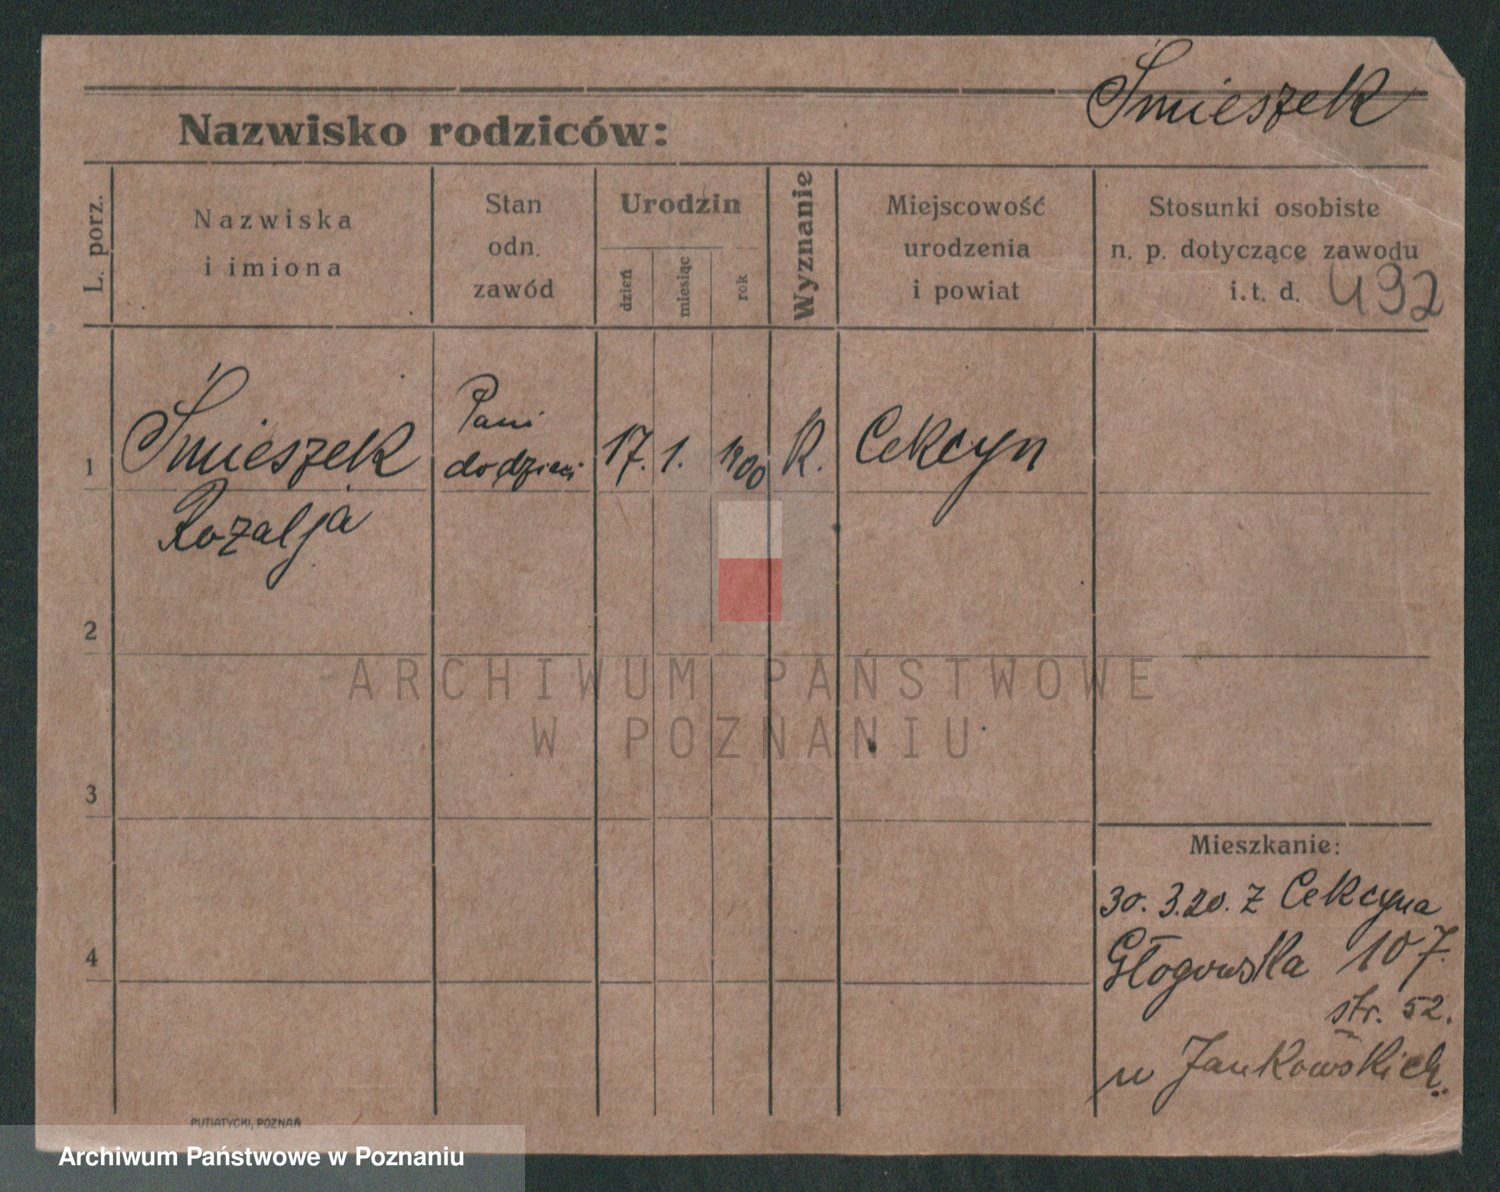 Śmieszek
Nazwisko rodziców:
L. porz.
Nazwiska
i imiona
Stan
odn.
zawód
Urodzin
dzień
miesiąc
rok
Wyznanie
Miejscowość
urodzenia
i powiat
Stosunki osobiste
n. p. dotyczące zawodu
i. t. d.
492
1
Śmieszek
Rozalja
Pani
do dzieci
17. 1. 1900
R.
Cekcyn
2
3
4
Mieszkanie:
30. 3.20. z Cekcyna
Głogowska 107.
str. 52.
u Jankowskich.
PUTIATYCKI, POZNAŃ
ARCHIWUM PAŃSTWOWE
W POZNANIU
Archiwum Państwowe w Poznaniu